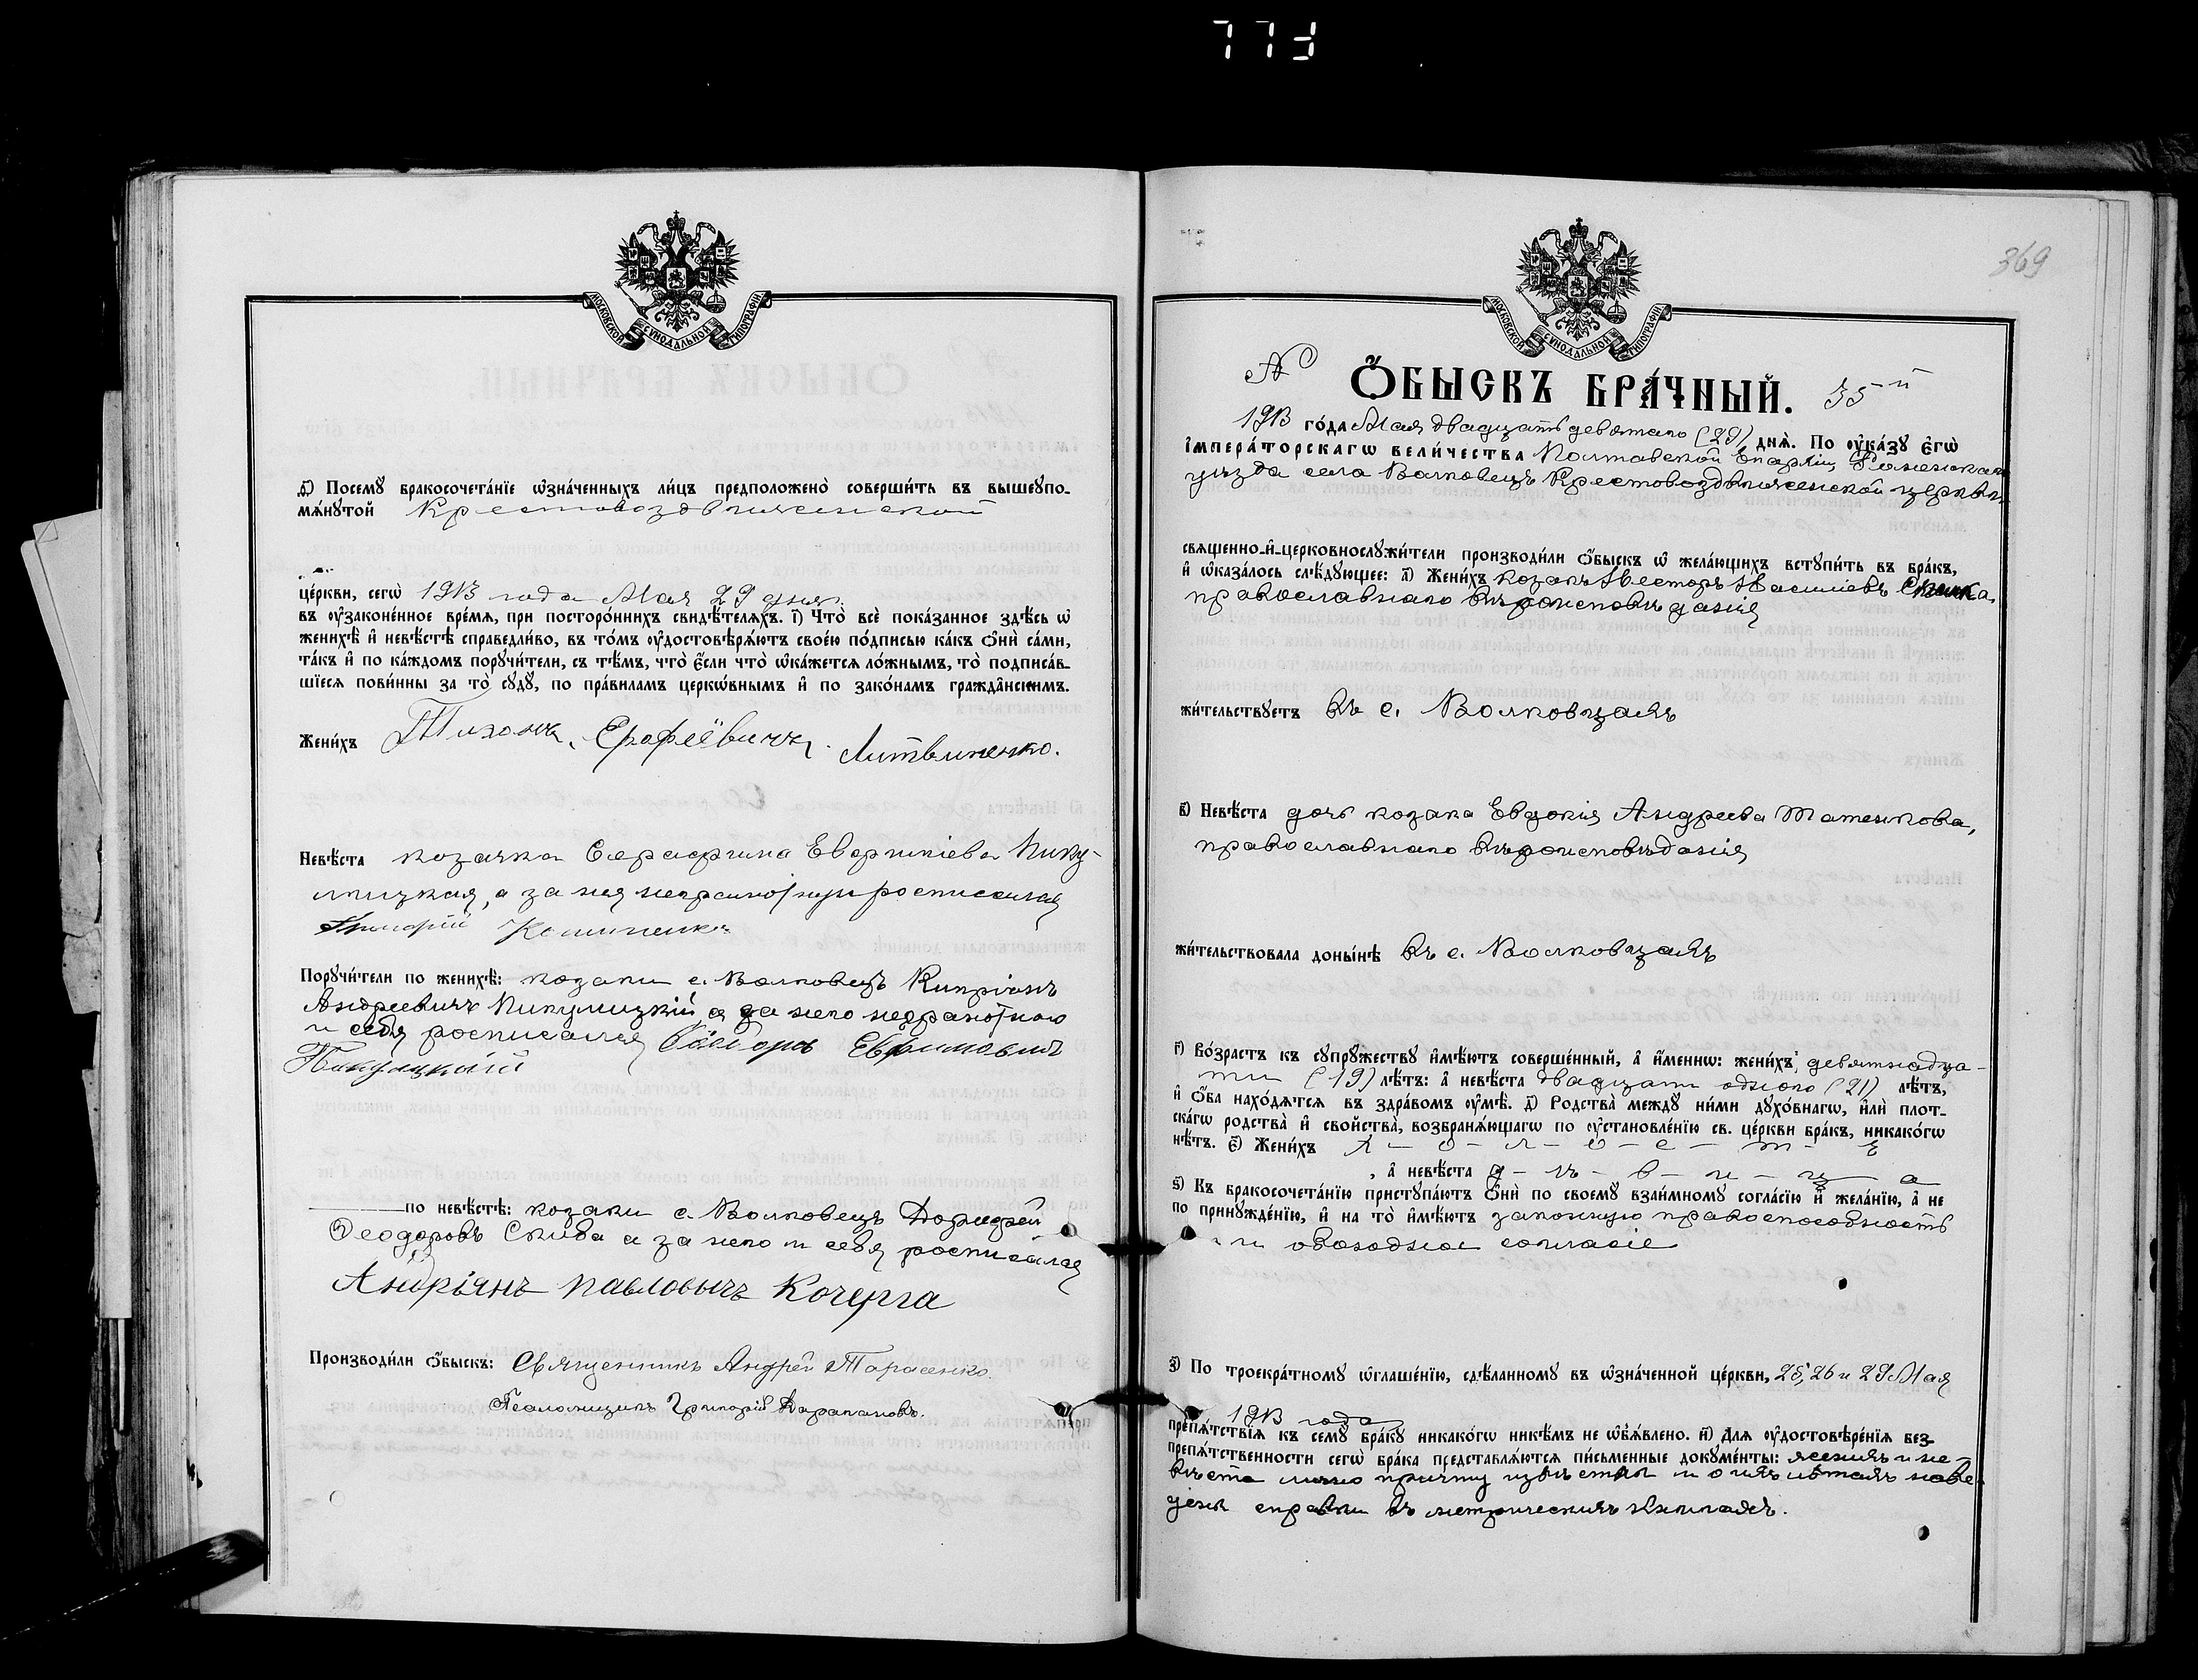 773
МОСКОВСКОЙ СѴНОДАЛЬНОЙ ТИПОГРАФІИ
д҃і) Посемꙋ бракосочета́нїе ѡ҆зна́ченныхъ ли́цъ предположено̀ соверши́ть въ вышеꙋпо-
мѧ́нꙋтой Крестовоздвиженской
це́ркви, сегѡ̀ 1913 года Мая 29 дня
въ ᲂу҆зако́ненное вре́мя, при посторо́ннихъ свидѣ́теляхъ. і҃) Что̀ всѐ пока́занное здѣ́сь ѡ҆
женихѣ̀ и҆ невѣ́стѣ справедли́во, въ то́мъ ᲂу҆достовѣрѧ́ютъ свое́ю по́дписью ка́къ ѻ҆нѝ са́ми,
та́къ и҆ по ка́ждомъ порꙋчи́тели, съ тѣ́мъ, что̀ є҆́сли что̀ ѡ҆ка́жется ло́жнымъ, то̀ подписа́в-
шїеся пови́нны за то̀ сꙋдꙋ̀, по пра́виламъ церкѡ́внымъ и҆ по зако́намъ гражда́нскимъ.
Жени́хъ Тихонъ Ерофеевичъ Литвиненко.
Невѣ́ста козачка Серафима Пику-
лицкая, а за нея неграмотную росписался
Порꙋчи́тели по женихѣ̀: козаки с. Волковецъ Кипріянъ
Андреевичъ Пикулицкій а за него неграмотного
и себя росписался Евфимовичъ
Пикулицкій
по невѣ́стѣ: козаки с. Волковецъ
Ѳеодоровъ Скиба а за него и себя росписался
Андріянъ Павловычъ Кочерга
Производи́ли ѻ҆́быскъ: Священникъ Андрей Тарасенко.
Псаломщикъ Григорій
369
МОСКОВСКОЙ СѴНОДАЛЬНОЙ ТИПОГРАФІИ
№ Ѻ҆́БЫСКЪ БРА́ЧНЫЙ. 35-й
1913 го́да Мая двадцать девятаго (29) днѧ̀. По ᲂу҆ка́зꙋ є҆гѡ̀
і҆мпера́торскагѡ вели́чества Полтавской Епархіи Роменскаго
уѣзда села Волковецъ Крестовоздвиженской церкви
свяще́нно-и҆-церковнослꙋжи́тели производи́ли ѻ҆́быскъ ѡ҆ жела́ющихъ встꙋпи́ть въ бра́къ,
и҆ ѡ҆каза́лось слѣ́дꙋющее: а҃) Жени́хъ козакъ Несторъ
православнаго вѣроисповѣданія
жи́тельствꙋетъ въ с. Волковцахъ
в҃) Невѣ́ста дочь козака Евдокія Андреева Татенкова,
православнаго вѣроисповѣданія
жи́тельствовала доны́нѣ въ с. Волковцахъ
г҃) Во́зрастъ къ сꙋпрꙋ́жествꙋ и҆мѣ́ютъ соверше́нный, а҆ и҆́меннѡ: жени́хъ девятнадца-
ти (19) лѣ́тъ: а҆ невѣ́ста двадцати одного (21) лѣ́тъ,
и҆ ѻ҆́ба нахо́дятся въ здра́вомъ ᲂу҆мѣ̀. д҃) Родства̀ междꙋ̀ ни́ми дꙋхо́внагѡ, и҆лѝ пло́т-
скагѡ родства̀ и҆ сво́йства̀, возбраня́ющагѡ по ᲂу҆становле́нїю св. це́ркви бра́къ, никако́гѡ
нѣ́тъ. є҃) Жени́хъ х-о-л-о-с-т-ъ
, а҆ невѣ́ста д-ѣ-в-и-ц-а
ѕ҃) Къ бракосочета́нїю пристꙋпа́ютъ ѻ҆нѝ по своемꙋ̀ взаи́мномꙋ согла́сїю и҆ жела́нїю, а҆ не
по принꙋжде́нїю, и҆ на то̀ и҆мѣ́ютъ законную правоспособность
и свободное согласіе
з҃) По троекра́тномꙋ ѡ҆глаше́нїю, сдѣ́ланномꙋ въ ѡ҆зна́ченной це́ркви, 25, 26 и 29 Мая
1913 года
препѧ́тствїя къ семꙋ̀ бра́кꙋ никако́гѡ никѣ́мъ не ѡ҆б̾ѧ́влено. и҃) Для ᲂу҆достовѣре́нїя без-
препѧ́тственности сегѡ̀ бра́ка представля́ются пи́сьменные докꙋме́нты: женихъ и не-
вѣста лично причту извѣстны и о ихъ лѣтахъ наве-
дены справки въ метрическихъ книгахъ.